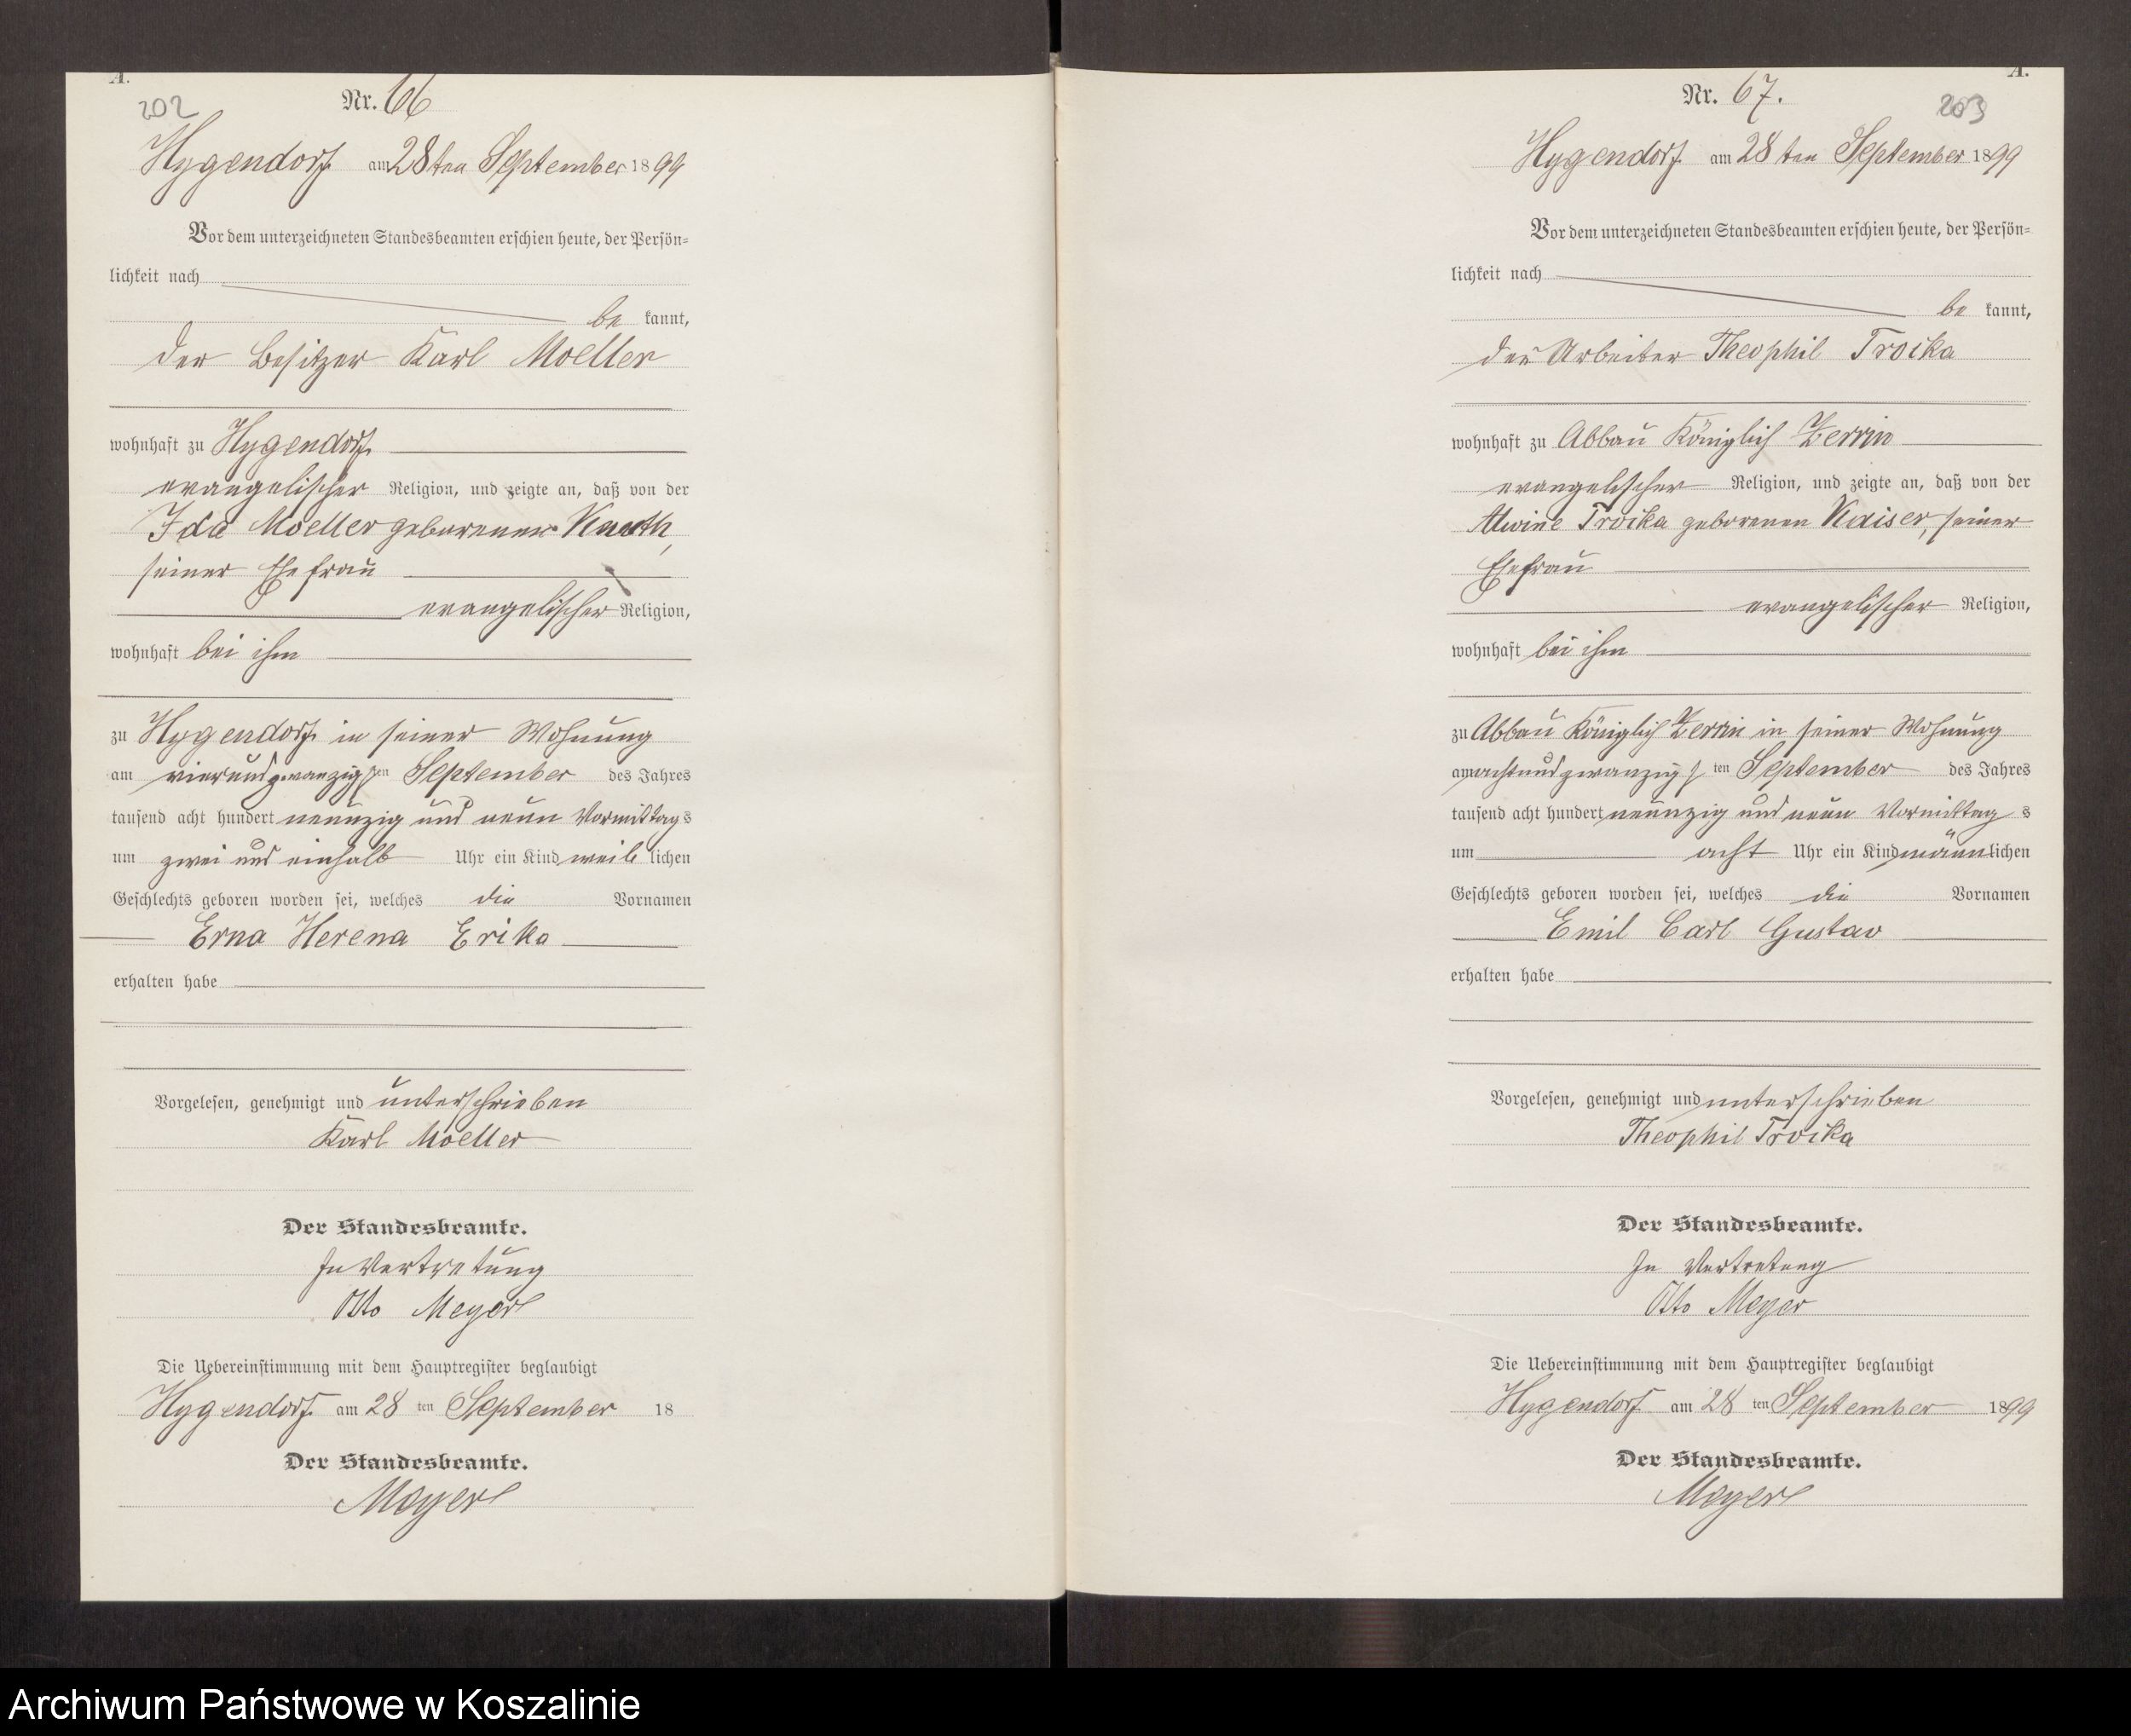 A.
202
Nr. 66
Hygendorf am 28ten September 1899
Vor dem unterzeichneten Standesbeamten erschien heute, der Persön-
lichkeit nach
be kannt,
der Besitzer Karl Moeller
wohnhaft zu Hygendorf
evangelischer Religion, und zeigte an, daß von der
Ida Moeller geborenen Knuth,
seiner Ehefrau
evangelischer Religion,
wohnhaft bei ihm
zu Hygendorf in seiner Wohnung
am vierundzwanzigsten September des Jahres
tausend acht hundert neunzig und neun Vormittags
um zwei und einhalb Uhr ein Kind weiblichen
Geschlechts geboren worden sei, welches die Vornamen
Erna Herena Erika
erhalten habe
Vorgelesen, genehmigt und unterschrieben
Karl Moeller
Der Standesbeamte.
In Vertretung
Otto Meyer
Die Uebereinstimmung mit dem Hauptregister beglaubigt
Hygendorf am 28 ten September 18
Der Standesbeamte.
Meyer
A.
Nr. 67.
203
Hygendorf am 28 ten September 1899
Vor dem unterzeichneten Standesbeamten erschien heute, der Persön-
lichkeit nach
be kannt,
der Arbeiter Theophil Troika
wohnhaft zu Abbau Königlich Zerrin
evangelischer Religion, und zeigte an, daß von der
Alwine Troika geborenen Kaiser, seiner
Ehefrau
evangelischer Religion,
wohnhaft bei ihm
zu Abbau Königlich Zerrin in seiner Wohnung
am achtundzwanzigsten September des Jahres
tausend acht hundert neunzig und neun Vormittag s
um acht Uhr ein Kind männlichen
Geschlechts geboren worden sei, welches die Vornamen
Emil Carl Gustav
erhalten habe
Vorgelesen, genehmigt und unterschrieben
Theophil Troika
Der Standesbeamte.
In Vertretung
Otto Meyer
Die Uebereinstimmung mit dem Hauptregister beglaubigt
Hygendorf am 28 ten September 1899
Der Standesbeamte.
Meyer
Archiwum Państwowe w Koszalinie